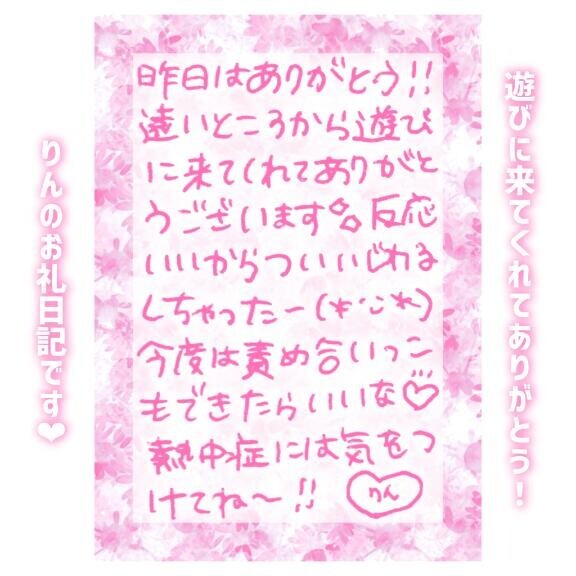 遊びに来てくれてありがとう！
昨日はありがとう!!
遠いところから遊び
に来てくれてありがと
うございます 反応
いいからついいじわる
しちゃったー(*´ω`*)
今度は責め合いっこ
もできたらいいな♡
熱中症には気をつ
けてね〜!!
りん
りんのお礼日記です❤